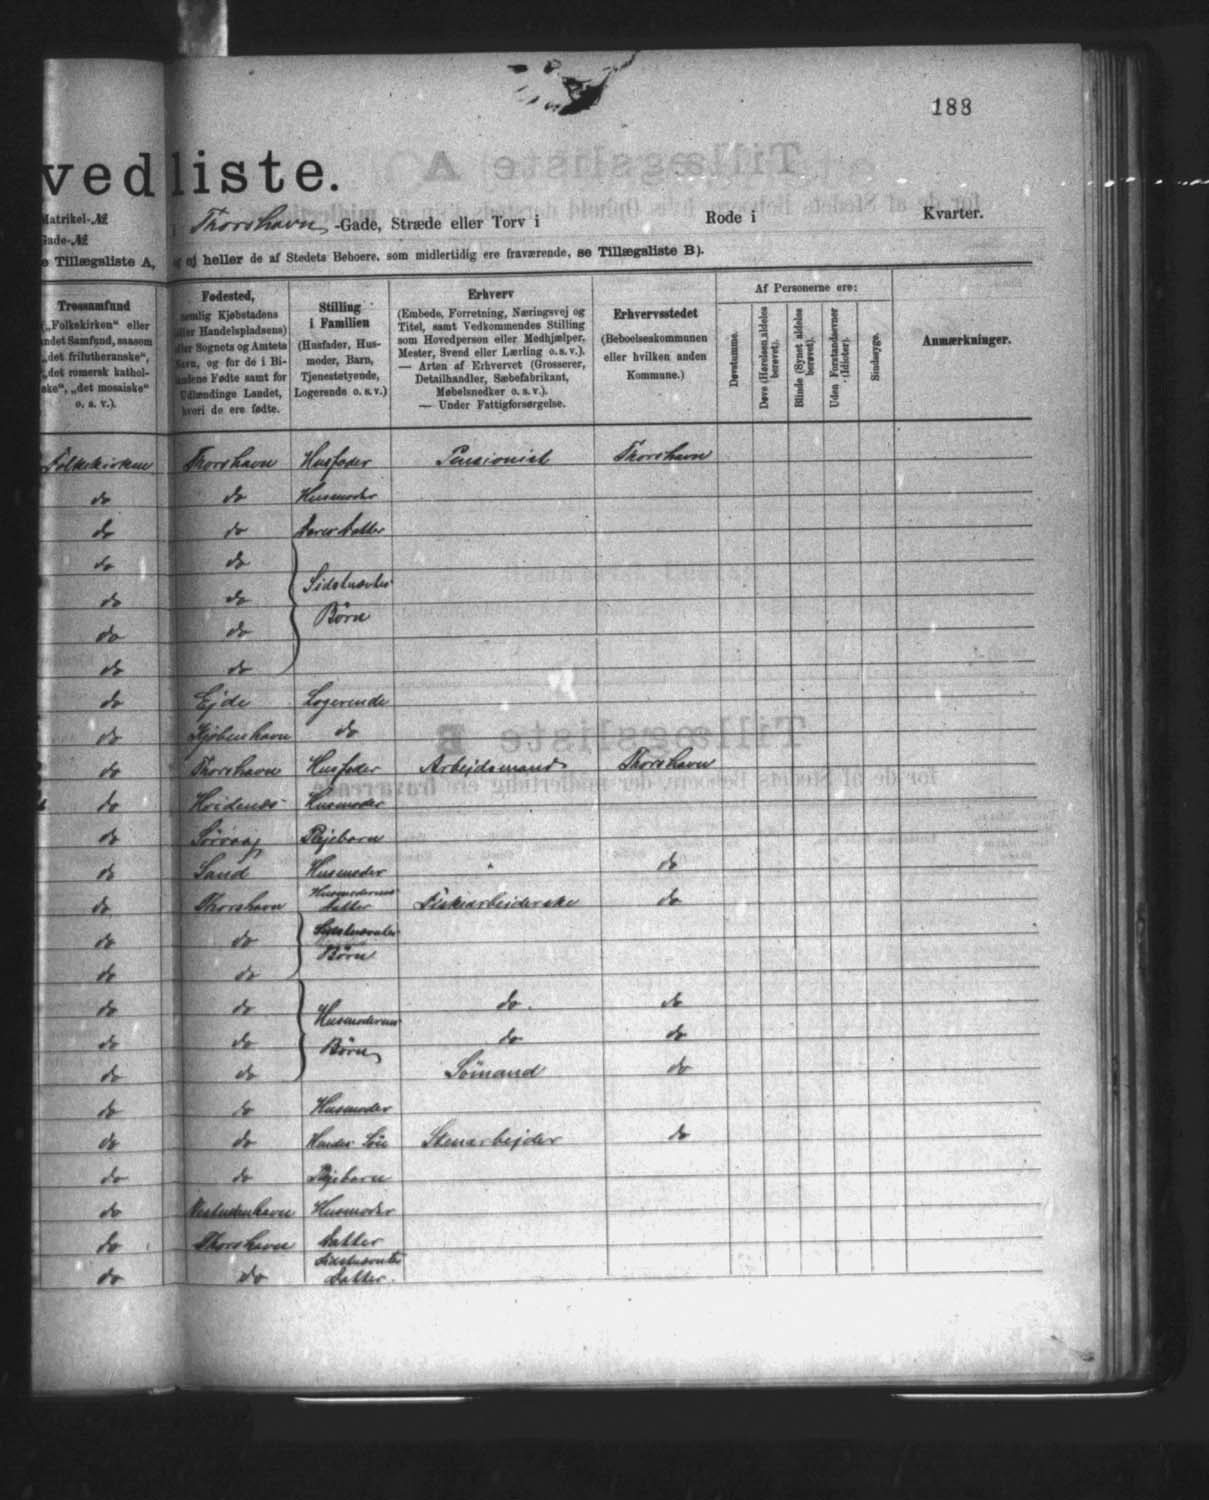 188
vedliste.
Matrikel-№
Gade-№
Thorshavn -Gade, Stræde eller Torv i Rode i Kvarter.
e Tillægsliste A, og ej heller de af Stedets Beboere, som midlertidig ere fraværende, se Tillægsliste B).
Trossamfund
(„Folkekirken“ eller
andet Samfund, saasom
„det frilutheranske“,
„det romersk kathol-
ske“, „det mosaiske“
o. s. v.).
Fødested,
nemlig Kjøbstadens
(eller Handelspladsens)
eller Sognets og Amtets
Navn, og for de i Bi-
landene Fødte samt for
Udlændinge Landet,
hvori de ere fødte.
Stilling
i Familien
(Husfader, Hus-
moder, Barn,
Tjenestetyende,
Logerende o. s. v.)
Erhverv
(Embede, Forretning, Næringsvej og
Titel, samt Vedkommendes Stilling
som Hovedperson eller Medhjælper,
Mester, Svend eller Lærling o. s. v.).
— Arten af Erhvervet (Grosserer,
Detailhandler, Sæbefabrikant,
Møbelsnedker o. s. v.).
— Under Fattigforsørgelse.
Erhvervsstedet
(Beboelseskommunen
eller hvilken anden
Kommune.)
Af Personerne ere:
Døvstumme.
Døve (Hørelsen aldeles
berøvet).
Blinde (Synet aldeles
berøvet).
Uden Forstandsevner
(Idioter).
Sindssyge.
Anmærkninger.
Folkekirken Thorshavn Husfader Pensionist Thorshavn
do do Husmoder
do do deres Datter
do do
do do Sidstnævntes
do do Børn
do do
do Ejde Logerende
do Kjøbenhavn do
do Thorshavn Husfader Arbejdsmand Thorshavn
do Hvidenæs Husmoder
do Sørvaag Plejebarn
do Sand Husmoder " do
do Thorshavn Husmoderens
Datter Fiskearbejderske do
do do Sidstnævntes
Børn
do do
do do do. do
Husmoderens
do do Børn do do
do do Sömand do
do do Husmoder
do do Hendes Sön Stenarbejder do
do do Plejebarn
do Vestmanhavn Husmoder
do Thorshavn Datter
do do Sidstnævntes
Datter.
Tillægsliste A
Tillægsliste B